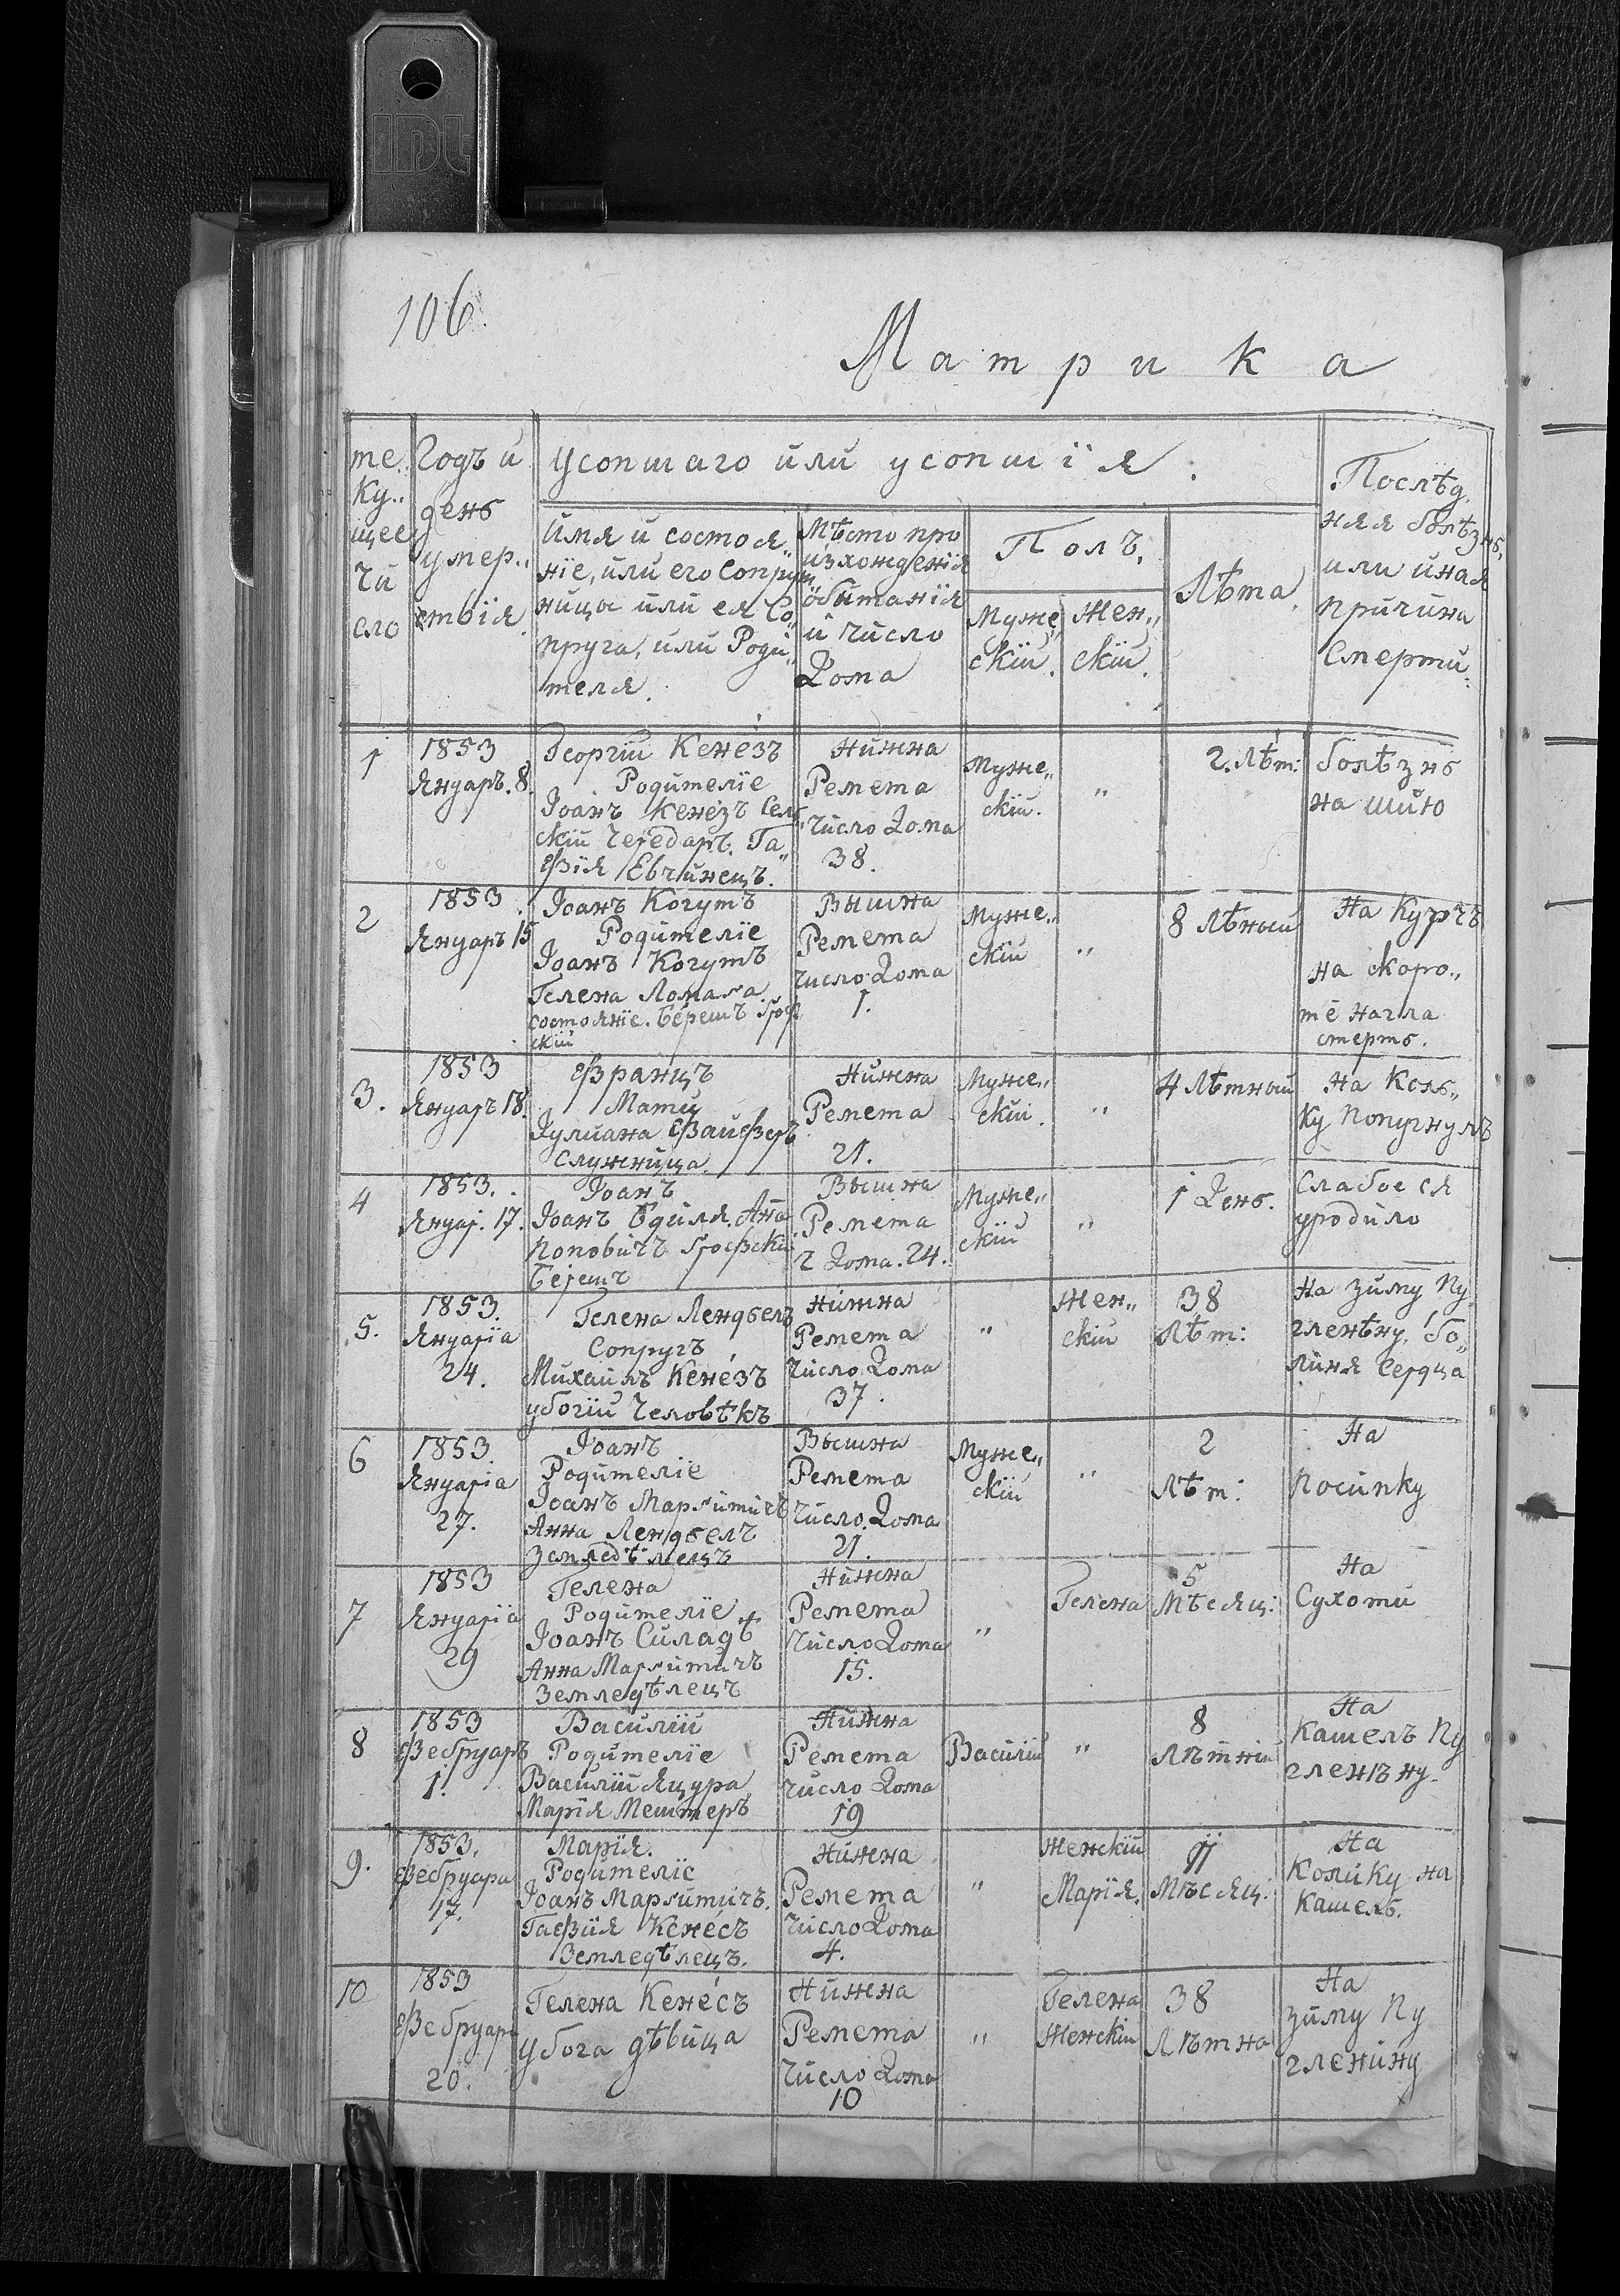 106.
Матрика
те..
ку..
щее
чи
сло
Годъ и
день
умер..
ствїя.
усопшаго или усопшїя.
Имя и состоя..
нїе, или его Супру..
ницы или ея Со..
пруга, или Роди..
теля.
Мѣсто про
изхожденїя
обитанїя
и число
Дома
Полъ.
Муже..
скїй.
Жен..
скїй.
Лѣта.
Послѣд.
няя болѣзнь,
или иная
причина
Смерти.
1
1853
Януаръ. 8.
Георгїй Кенéзъ
Родителїе
Іоанъ Кенéзъ Сель
скїй Чередаръ. Га..
фїя Евчинецъ.
Нижна
Ремета
Число Дома
38.
Муже..
скїй.
"
2. Лѣт:
болѣзнь
на шию
2
1853.
Януаръ 15
Іоанъ Когутъ
Родителїе
Іоанъ Когутъ
Гелена Ломага
состоянїе. Берешъ Гроф
скїй
Вышна
Ремета
число Дома
1.
Муже..
скїй
"
8 Лѣный
На Курчъ
на скоро..
те нагла
смерть.
3.
1853
Януаръ 18.
Францъ
Мати
Іулиана Файферъ
Служница
Нижна
Ремета
21.
Муже..
скїй.
"
4 Лѣтный
На Коль..
ку попугнулъ
4
1853.
Януар. 17.
Іоанъ
Іоанъ Бдиля. Ана
Поповичъ Грофскїй
Берешъ
Вышна
Ремета
Ч Дома. 24.
Муже..
скїй
"
1 День.
Слабое ся
уродило
5.
1853.
Януарїа
24.
Гелена Лендбелъ
Сопругъ
Михаилъ Кенéзъ
убогїй Человѣкъ
Нижна
Ремета
Число Дома
37.
"
Жен..
скїй
38
Лѣт:
На зиму Пу
гленѣну. бо..
линя Сердца
6
1853.
Януарїа
27.
Іоанъ
Родителїе
Іоанъ Маргитичъ
Анна Лендбелъ
Земледѣлецъ
Вышна
Ремета
Число Дома
21.
Муже..
скїй
"
2
Лѣт:
На
Посипку
7
1853
Януарїа
29
Гелена
Родителїе
Іоанъ Силадѣ
Анна Маргитичъ
Земледѣлецъ
Нижна
Ремета
Число Дома
15.
"
Гелена
5
Мѣсяц:
На
Сухоти
8
1853
Фебруаръ
1.
Василїй
Родителїе
Василїй Яцура
Марїя Мештеръ
Нижна
Ремета
Число Дома
19
Василїй
"
8
Лѣтнїй
На
Кашелъ Пу
гленѣну.
9.
1853.
Фебруара
17.
Марїя.
Родителїе
Іоанъ Маргитичъ.
Гафїя Кенéсъ
Земледѣлецъ.
Нижна
Ремета
Число Дома
4.
"
Женскїй
Марїя.
Мѣсяц:
На
Колику на
Кашель.
10
1853
Фебруара
20.
Гелена Кенéсъ
Убога дѣвица
Нижна
Ремета
Число Дома
10
"
Гелена
Женскїй
38
Лѣтна
На
зиму Пу
гленину